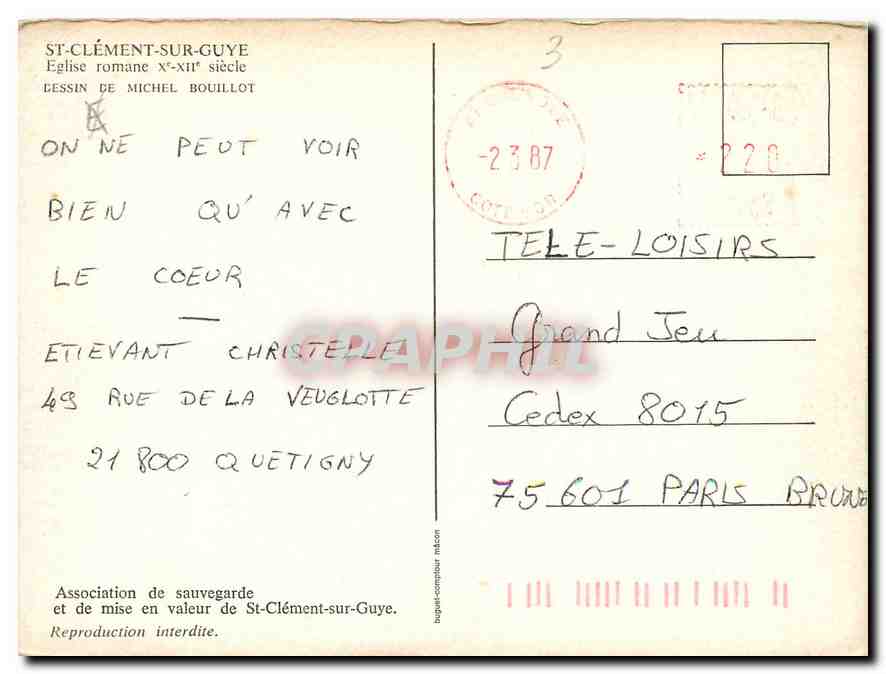 ST-CLÉMENT-SUR-GUYE
Eglise romane Xᵉ-XIIᵉ siècle
DESSIN DE MICHEL BOUILLOT
ON NE PEUT VOIR
BIEN QU'AVEC
LE COEUR
—
ETIEVANT CHRISTELLE
49 RUE DE LA VEUGLOTTE
21 800 QUETIGNY
Association de sauvegarde
et de mise en valeur de St-Clément-sur-Guye.
Reproduction interdite.
buguet-comptour mâcon
3
-2 3 87
COTE D'OR
* 220
TELE-LOISIRS
Grand Jeu
Cedex 8015
75 601 PARIS BRUNE
CPAPHIL